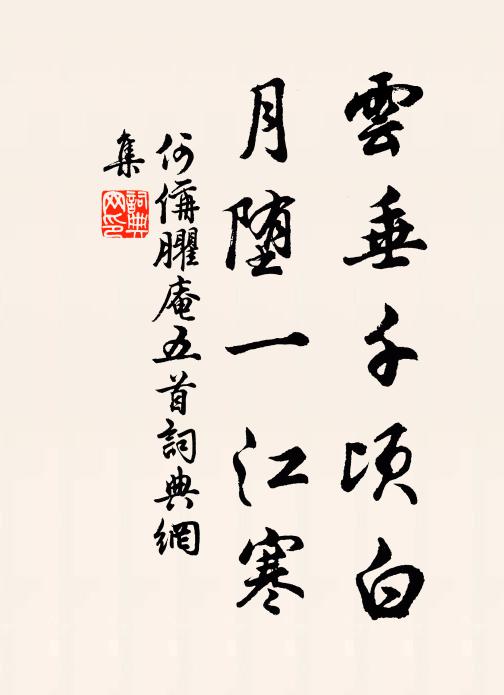 雲垂千頃白
月堕一江寒
何偁臞庵五首詞典網
集
詞典
网印